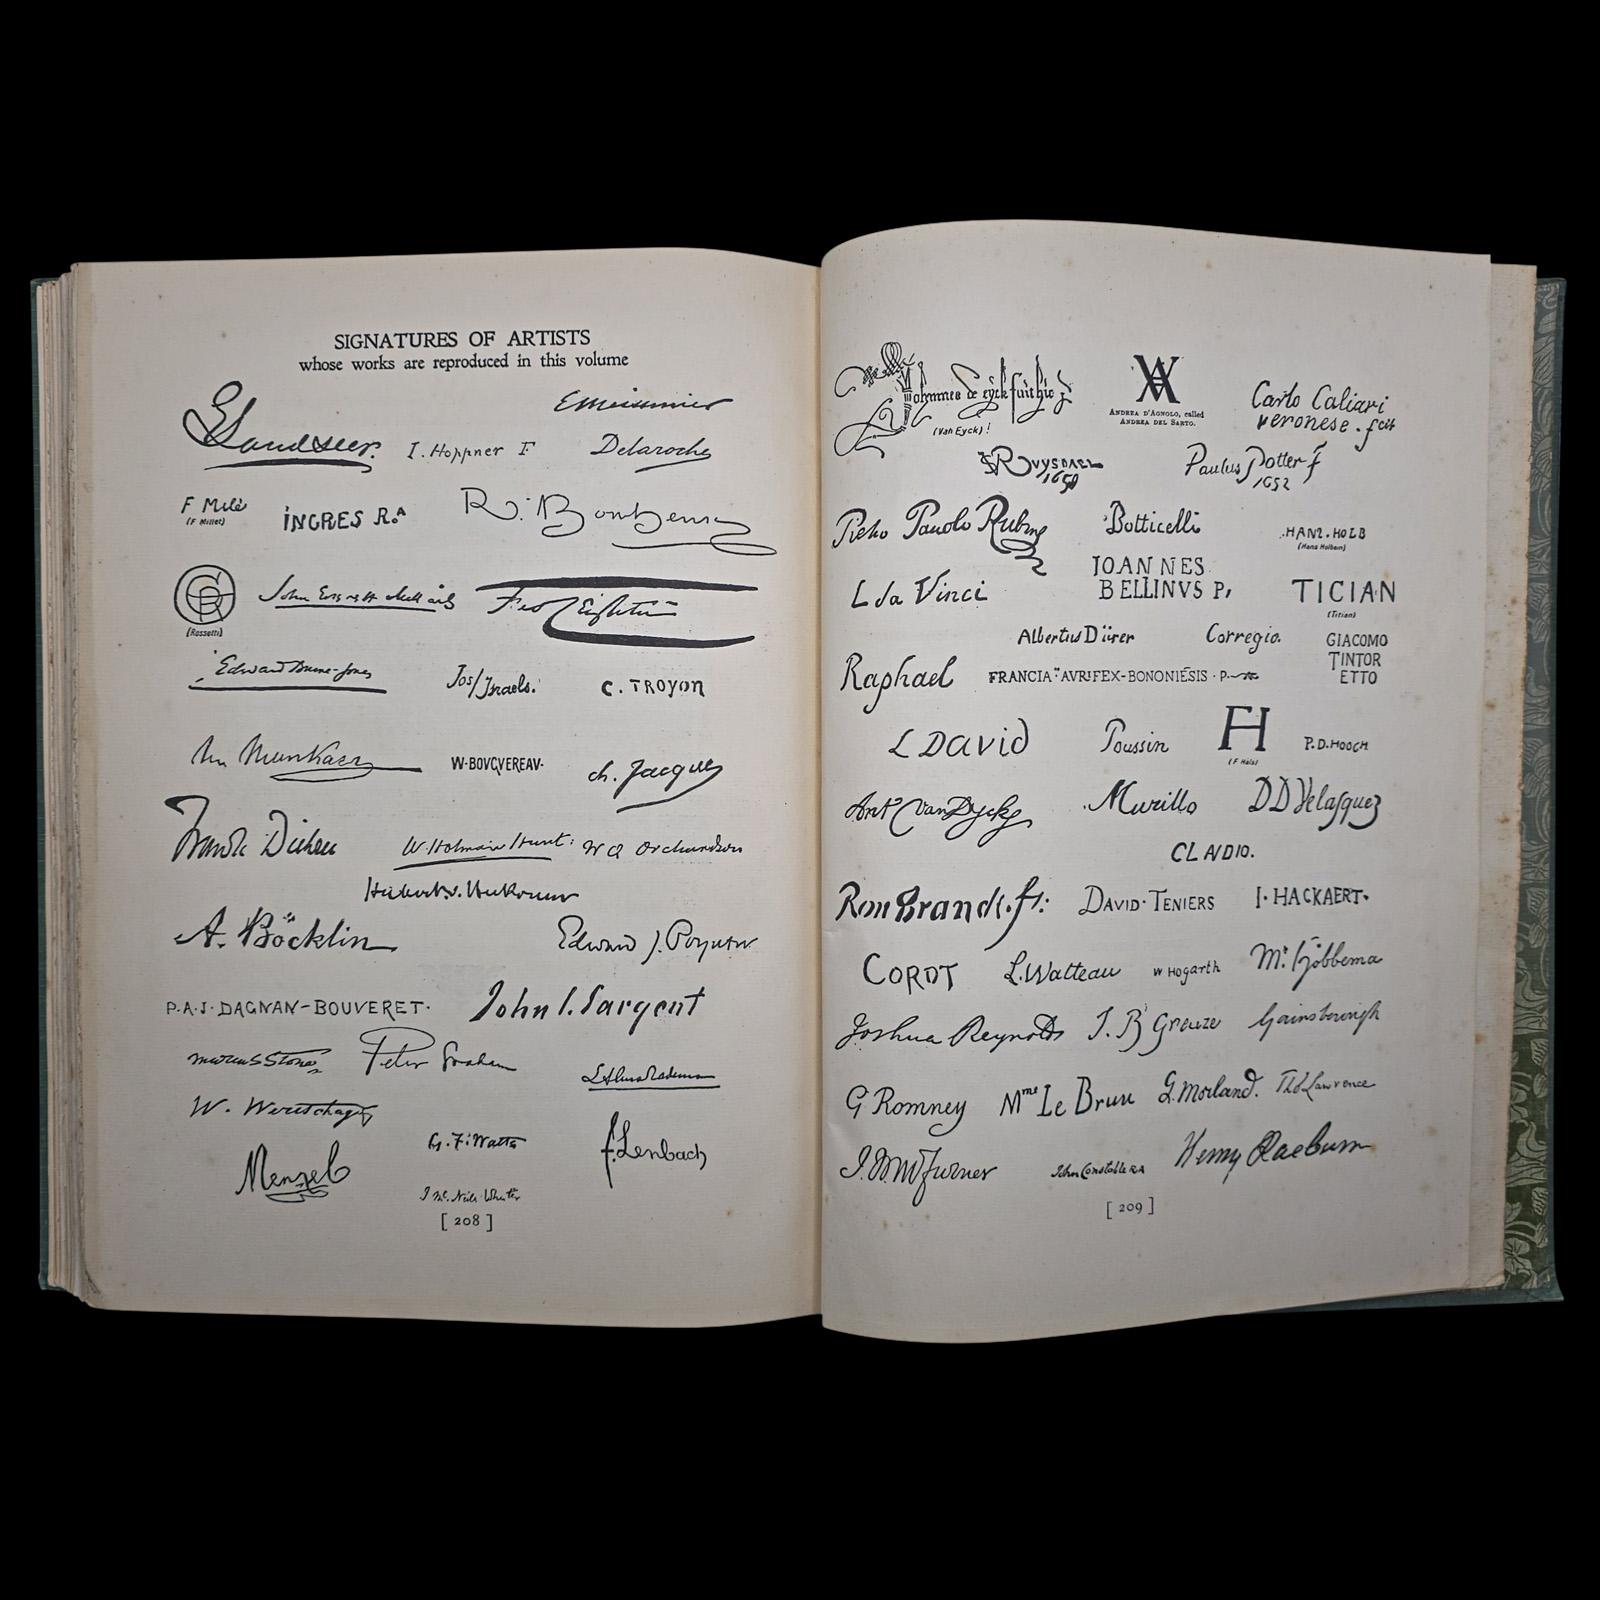 SIGNATURES OF ARTISTS
whose works are reproduced in this volume
E Meissonier
E Landseer.
I. Hoppner F
Delaroche
F Milé
(F Millet)
INGRES R.A
R. Bonheur
(Rossetti)
John Everett Millais
Fred Leighton
Edward Burne-Jones
Jos/Israels.
C. TROYON
W·BOVGVEREAV·
ch. Jacque
Frank Dicksee
W. Holman Hunt:
W Q Orchardson
Hubert v. Herkomer
A. Böcklin
Edward J. Poynter
P.A.J. DAGNAN-BOUVERET.
John S. Sargent
Marcus Stone
Peter Graham
L Alma Tadema
W. Werestchagin
G. F. Watts
f. Lenbach
Menzel
J Mc. Neill Whistler
[ 208 ]
Johannes de eyck fuit hic
(Van Eyck)!
ANDREA D'AGNOLO, called
ANDREA DEL SARTO.
Carlo Caliari
veronese. fcit
JRuysdael
1650
Paulus Potter f
1652
Pietro Pauolo Rubens
Botticelli
HANS. HOLB
(Hans Holbein)
L da Vinci
IOANNES
BELLINVS P,
TICIAN
(Titian)
Albertus Dürer
Corregio.
GIACOMO
TINTOR
ETTO
Raphael
FRANCIA AVRIFEX-BONONIÉSIS · P.
L DaviD
Poussin
FH
(F Hals)
P.D.HOOCH
Ant VanDycke
Murillo
DD Velasquez
CLAVDIO.
Rembrandt. ft:
DAVID·TENIERS
I·HACKAERT·
COROT
L.Watteau
W Hogarth
M. Hobbema
Joshua Reynolds
J. B Greuze
Gainsborough
G Romney
Mme Le Brun
G. Morland.
Tho Lawrence
J. M W Turner
John Constable RA
Henry Raeburn
[ 209 ]